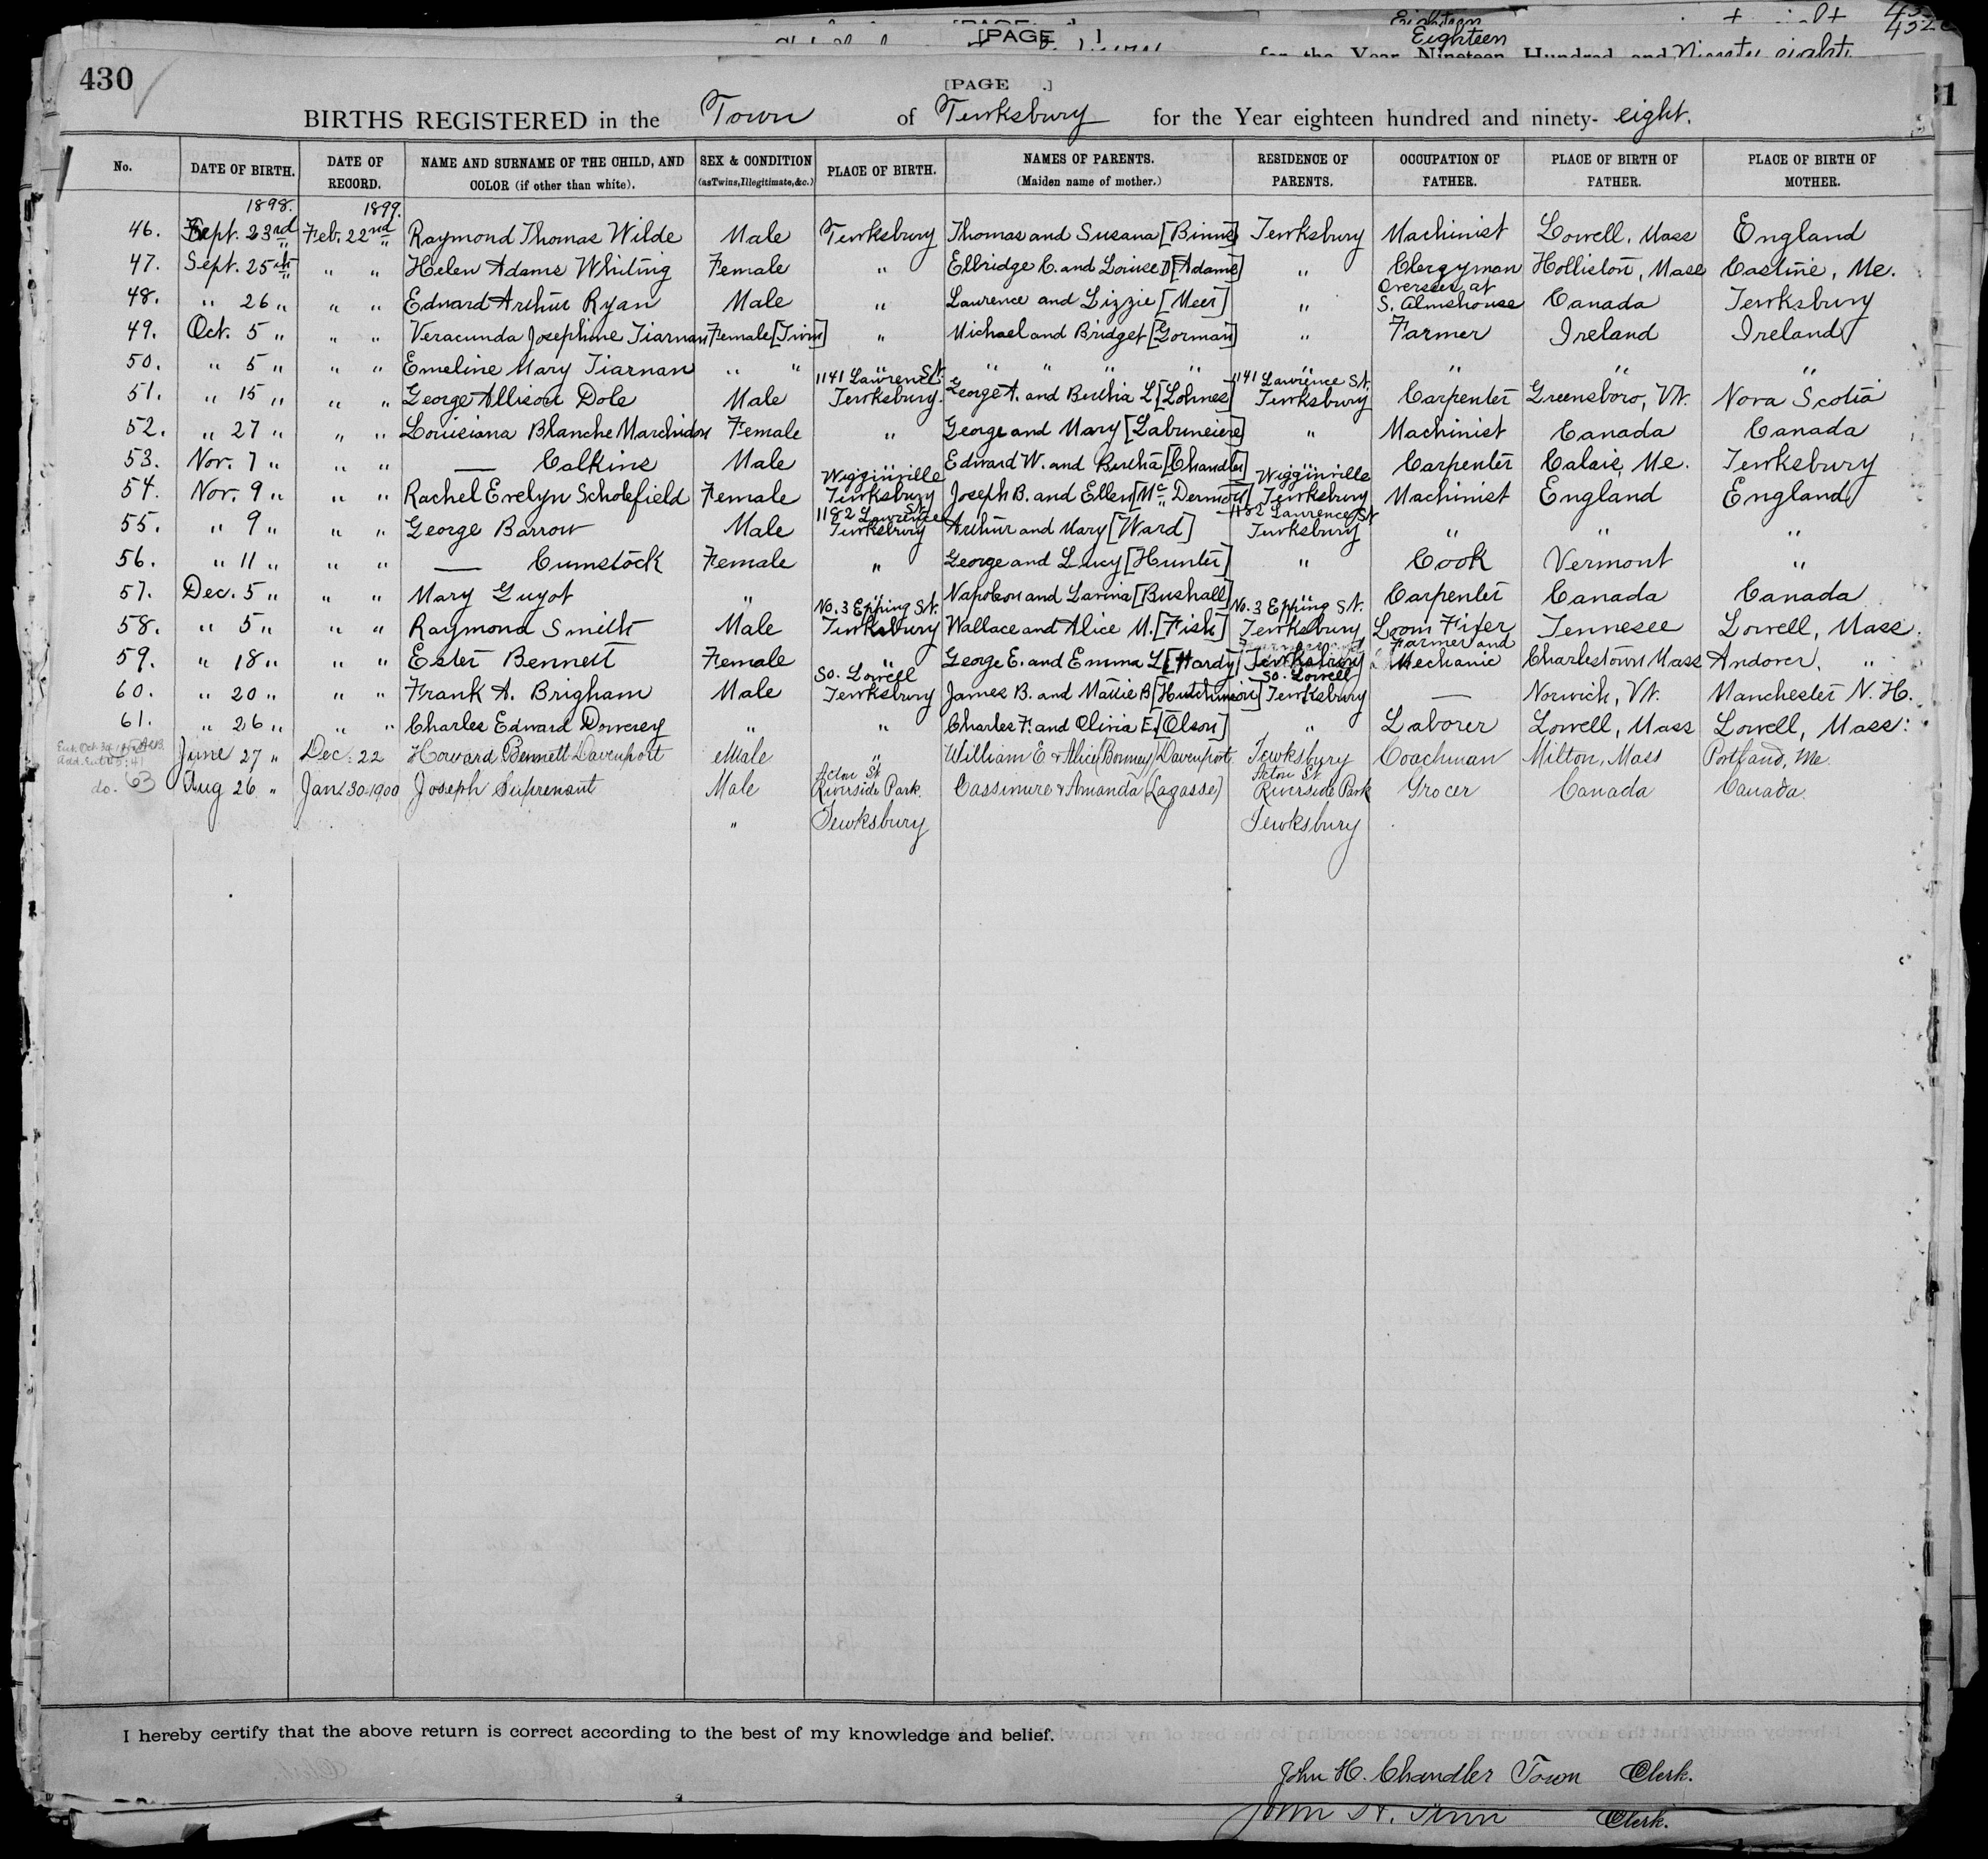 [PAGE ]
Eighteen
for the Year Nineteen Hundred and Ninety eight
430
[PAGE .]
BIRTHS REGISTERED in the Town of Tewksbury for the Year eighteen hundred and ninety- eight.
No. DATE OF BIRTH. DATE OF RECORD. NAME AND SURNAME OF THE CHILD, AND COLOR (if other than white). SEX & CONDITION (as Twins, Illegitimate, &c.) PLACE OF BIRTH. NAMES OF PARENTS. (Maiden name of mother.) RESIDENCE OF PARENTS. OCCUPATION OF FATHER. PLACE OF BIRTH OF FATHER. PLACE OF BIRTH OF MOTHER.
1898. 1899.
46. Sept. 23rd Feb. 22nd Raymond Thomas Wilde Male Tewksbury Thomas and Susana [Binns] Tewksbury Machinist Lowell, Mass England
47. Sept. 25th " " Helen Adams Whiting Female " Ellbridge C. and Louise D [Adams] " Clergyman Holliston, Mass Castine, Me.
48. " 26 " " " Edward Arthur Ryan Male " Laurence and Lizzie [Meer] " Overseer at S. Almshouse Canada Tewksbury
49. Oct. 5 " " " Veracunda Josephine Tiarnan Female [Twin] " Michael and Bridget [Gorman] " Farmer Ireland Ireland
50. " 5 " " " Emeline Mary Tiarnan " " " " " " " " " " "
51. " 15 " " " George Allison Dole Male 1141 Lawrence St. Tewksbury. George A. and Bertha L [Lohnes] 1141 Lawrence St. Tewksbury Carpenter Greensboro, Vt. Nova Scotia
52. " 27 " " " Louisiana Blanche Marchidon Female " George and Mary [Labuneiere] " Machinist Canada Canada
53. Nov. 7 " " " — Calkins Male " Edward W. and Bertha [Chandler] " Carpenter Calais, Me. Tewksbury
54. Nov. 9 " " " Rachel Evelyn Scholefield Female Wigginville Tewksbury Joseph B. and Ellen [Mc Dermott] Wigginville Tewksbury Machinist England England
55. " 9 " " " George Barrow Male 1182 Lawrence St. Tewksbury Arthur and Mary [Ward] 1182 Lawrence St Tewksbury " " "
56. " 11 " " " — Cumstock Female " George and Lucy [Hunter] " Cook Vermont "
57. Dec. 5 " " " Mary Guyot " " Napoleon and Lavina [Bushall] " Carpenter Canada Canada
58. " 5 " " " Raymond Smith Male No. 3 Epping St. Tewksbury Wallace and Alice M. [Fish] No. 3 Epping St. Tewksbury Loom Fixer Tennesee Lowell, Mass.
59. " 18 " " " Ester Bennett Female " George E. and Emma L [Hardy] Tewksbury Farmer and Mechanic Charlestown Mass Andover, "
60. " 20 " " " Frank A. Brigham Male So. Lowell Tewksbury James B. and Mattie B [Hutchinson] So. Lowell Tewksbury — Norwich, Vt. Manchester N. H.
61. " 26 " " " Charles Edward Dowersey " " Charles F. and Olivia E. [Olson] " Laborer Lowell, Mass Lowell, Mass.
June 27 " Dec. 22 Howard Bennett Davenport Male " William E & Alice (Bonney) Davenport Tewksbury Coachman Milton, Mass Portland, Me
do. 63 Aug 26 " Jan 30-1900 Joseph Suprenant Male Acton St Riverside Park. Cassimire & Amanda (Lagasse) Acton St Riverside Park Grocer Canada Canada.
" Tewksbury Tewksbury
I hereby certify that the above return is correct according to the best of my knowledge and belief.
John H. Chandler Town Clerk.
Clerk.